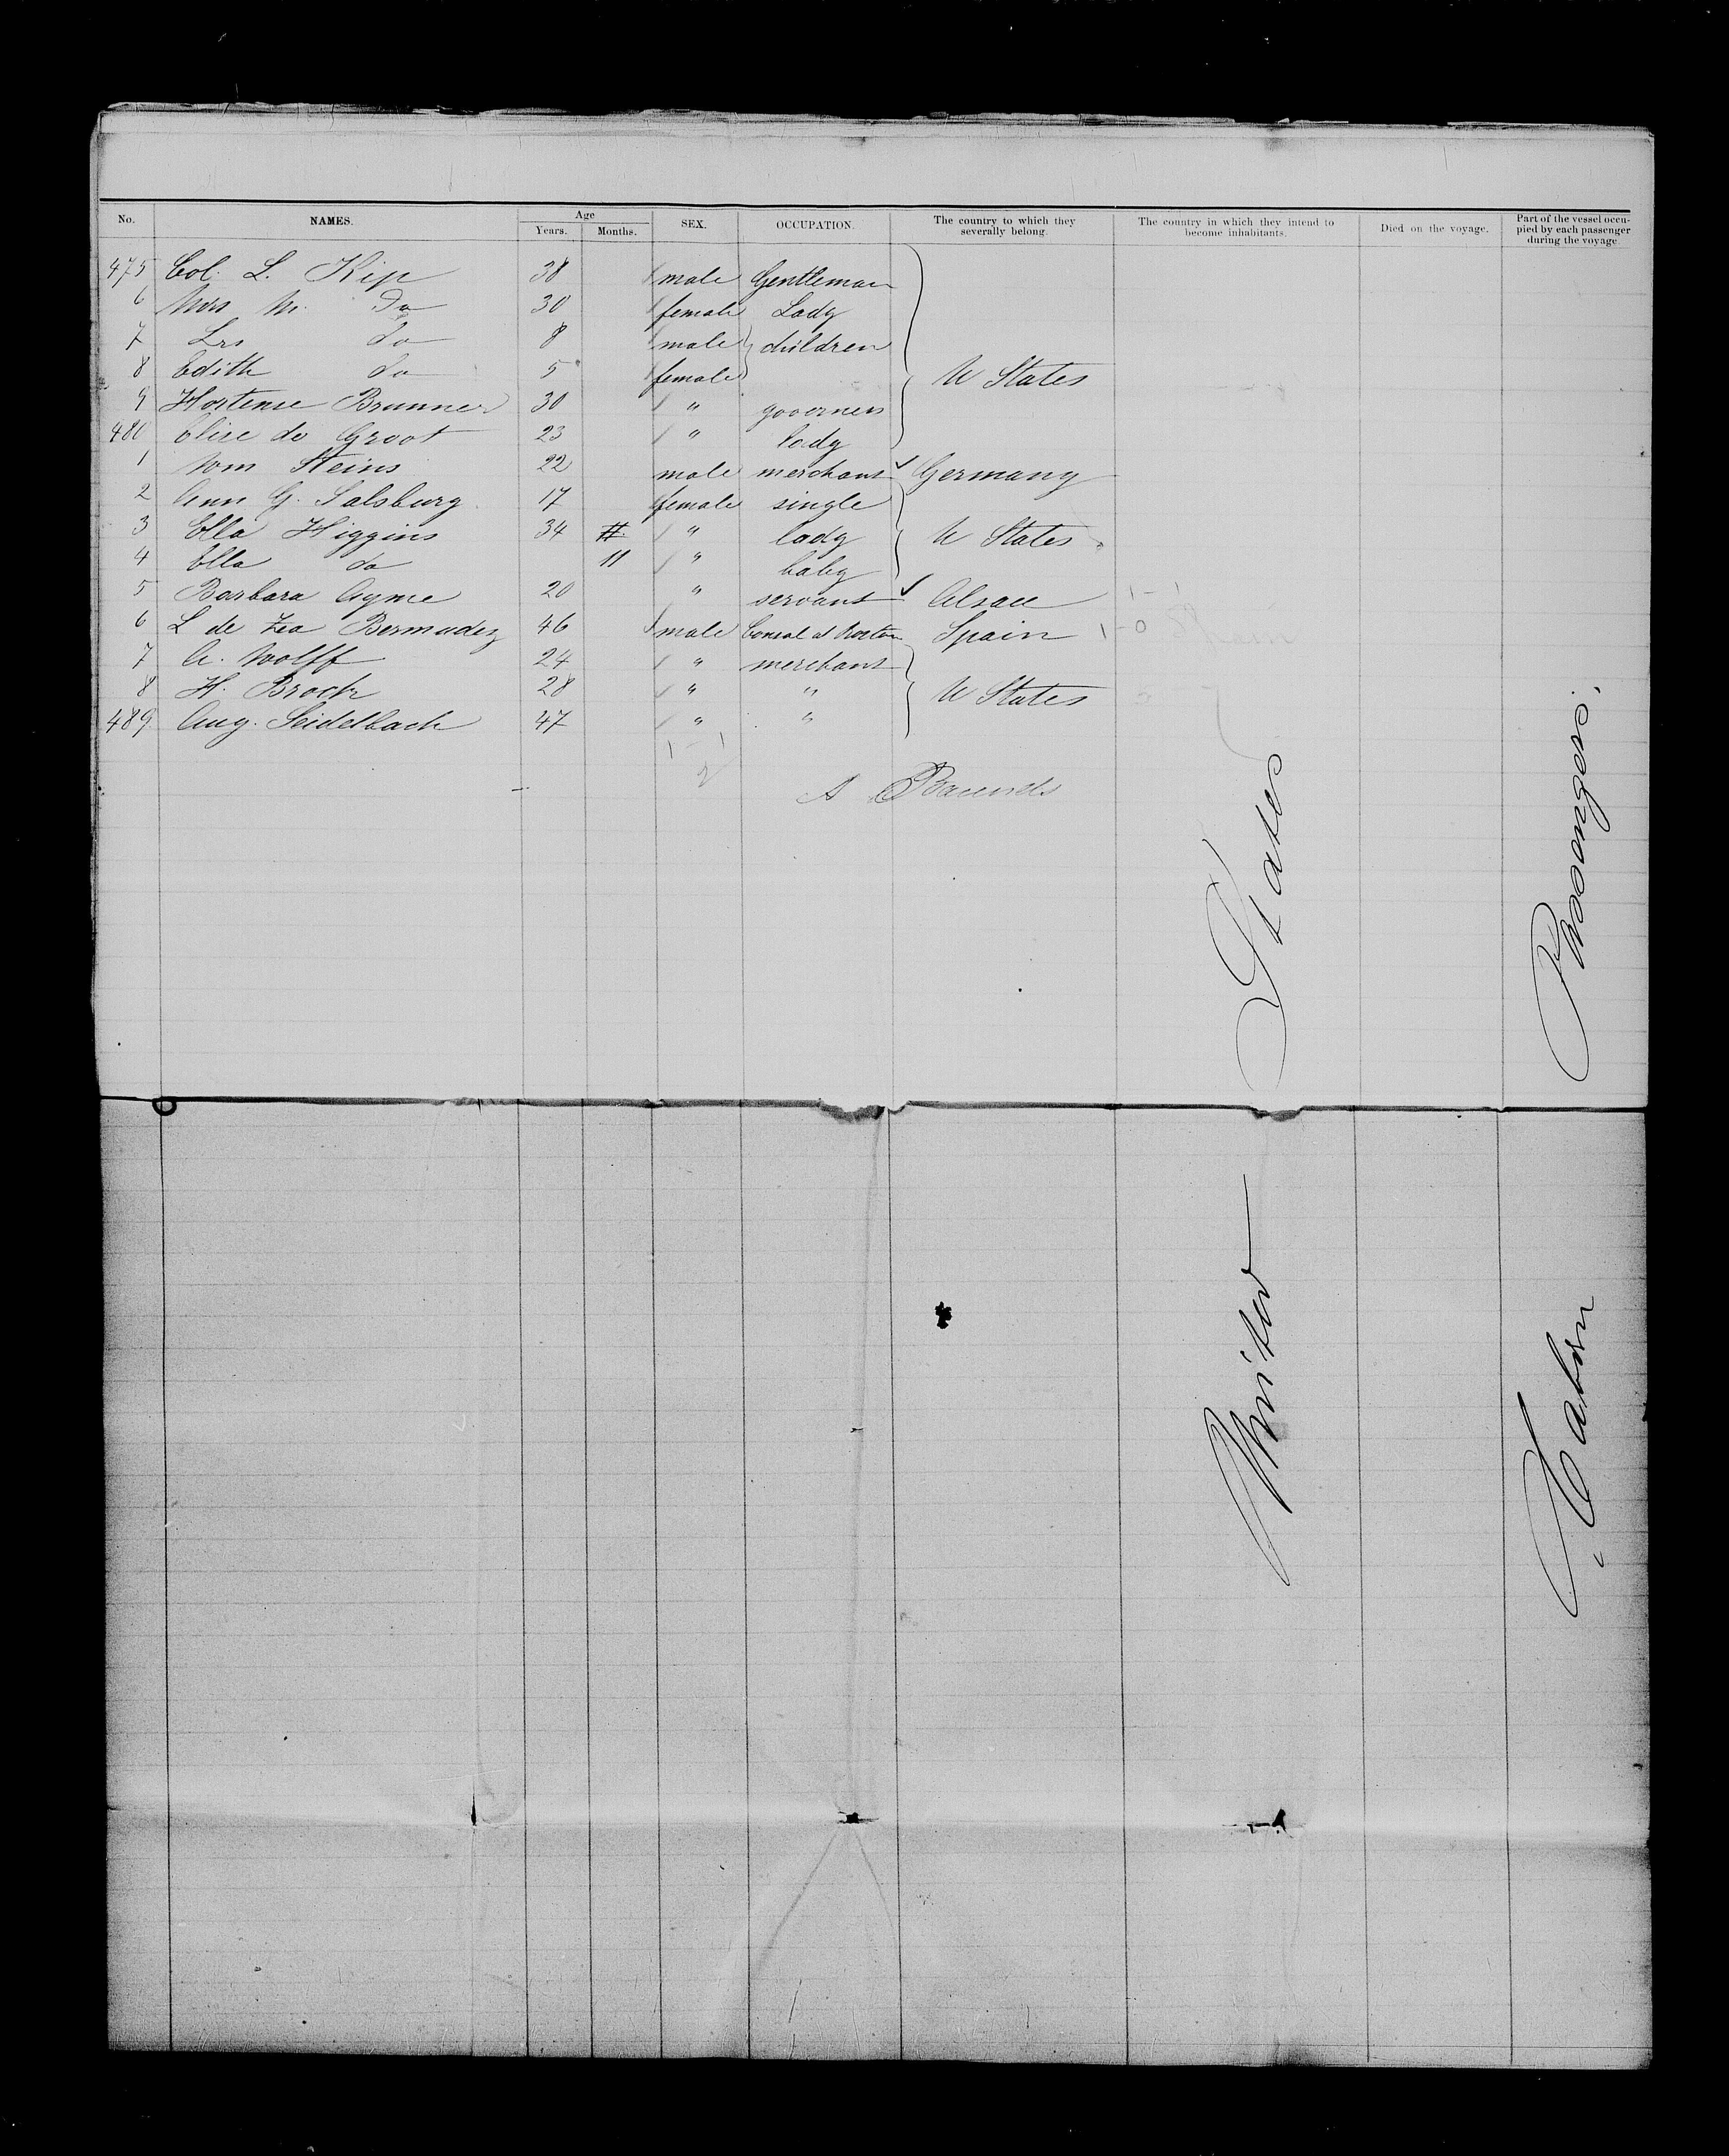 No. NAMES. Age Years. Months. SEX. OCCUPATION. The country to which they severally belong. The country in which they intend to become inhabitants. Died on the voyage. Part of the vessel occupied by each passenger during the voyage.
475 Col. L. Kip 38 male Gentleman
6 Mrs M. Do 30 female Lady
7 Lrs do 8 male children
8 Edith do 5 female U States
9 Hortense Brunner 30 " governess
480 Elise de Groot 23 " lady
1 Wm Steins 22 male merchant Germany
2 Ann G. Salsburg 17 female single
3 Ella Higgins 34 " lady U States
4 Ella do 11 " baby
5 Barbara Ayme 20 " servant Alsace
6 L de Zea Bermudez 46 male Consul at Boston Spain
7 A. Wolff 24 " merchant
8 H. Brock 28 " " U States
489. Aug. Seidelbach 47 " "
United States
Cabin Passengers.